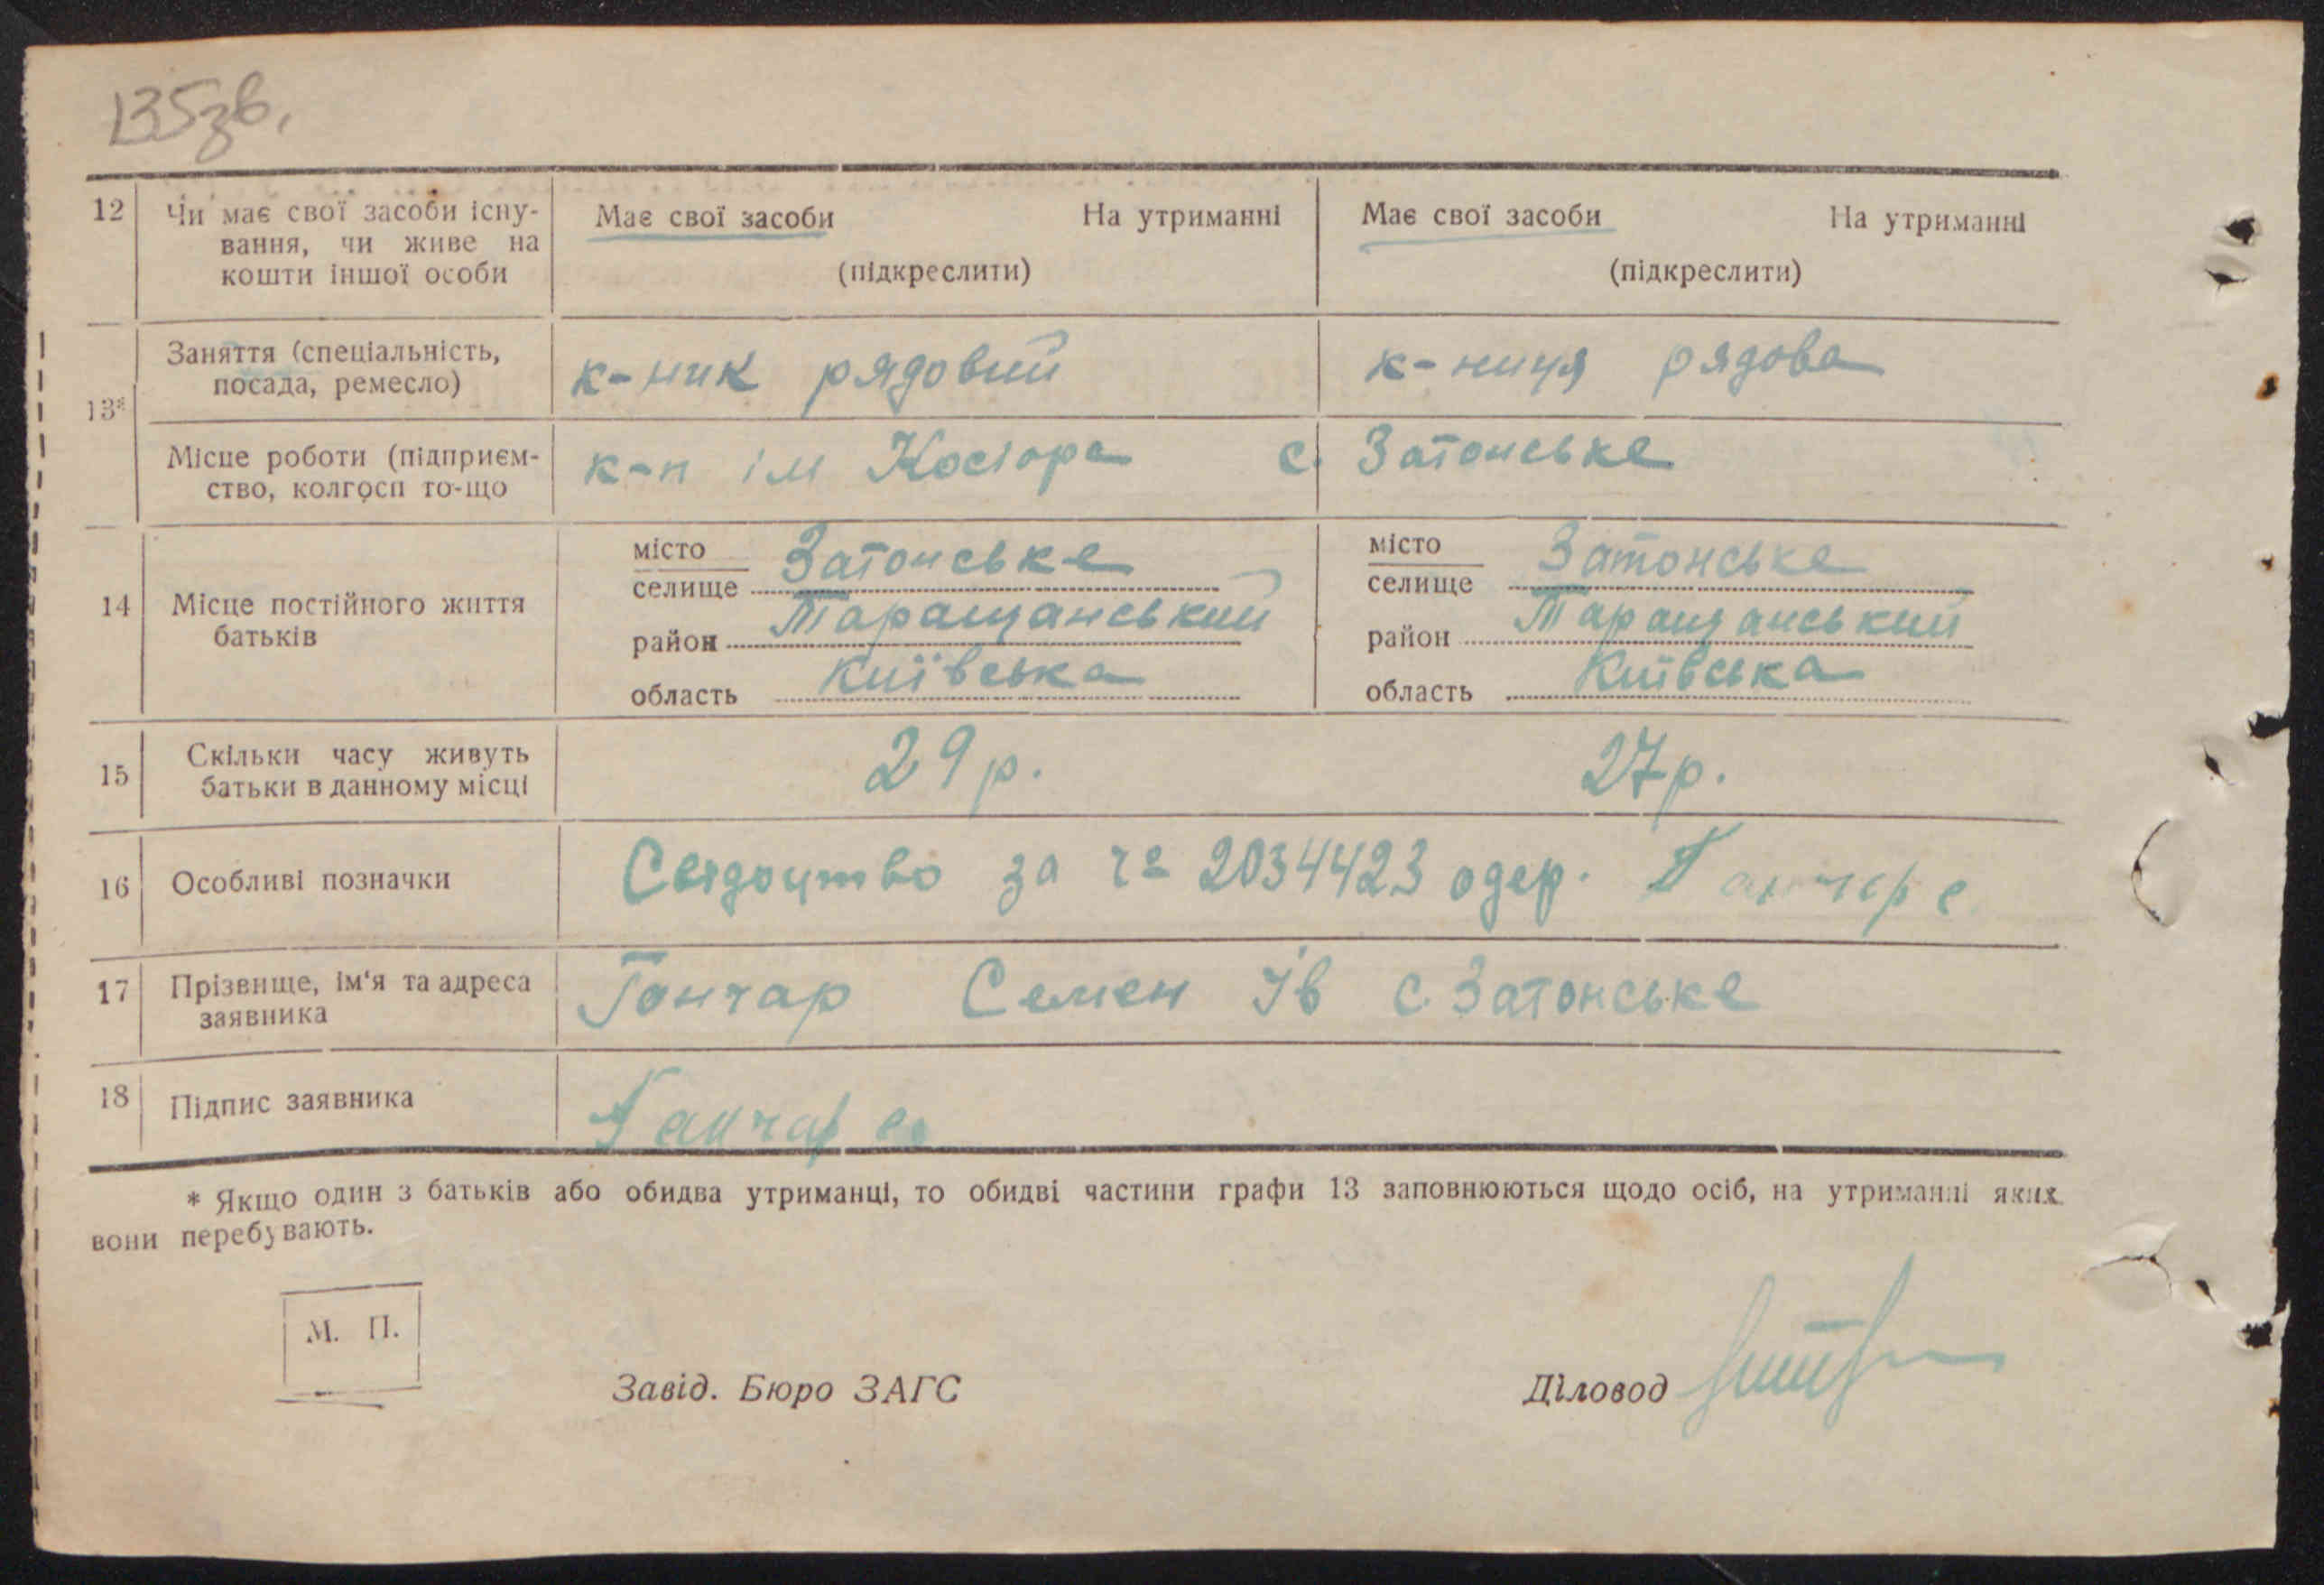 135зв.
12 Чи має свої засоби існу- Має свої засоби На утриманні Має свої засоби На утриманні
вання, чи живе на
кошти іншої особи (підкреслити) (підкреслити)
13* Заняття (спеціальність, к-ник рядовий к-ниця рядова
посада, ремесло)
Місце роботи (підприєм- к-п ім Косіора с. Затонське
ство, колгосп то-що
14 Місце постійного життя батьків
місто Затонське місто Затонське
селище селище
район Таращанський район Таращанський
область Київська область Київська
15 Скільки часу живуть 29 р. 27 р.
батьки в данному місці
16 Особливі позначки Свідоцтво за ч 2034423 одер. Ганчар с
17 Прізвище, ім'я та адреса Гончар Семен Ів с. Затонське
заявника
18 Підпис заявника Ганчар с
* Якщо один з батьків або обидва утриманці, то обидві частини графи 13 заповнюються щодо осіб, на утриманні яких
вони перебувають.
М. П.
Завід. Бюро ЗАГС Діловод